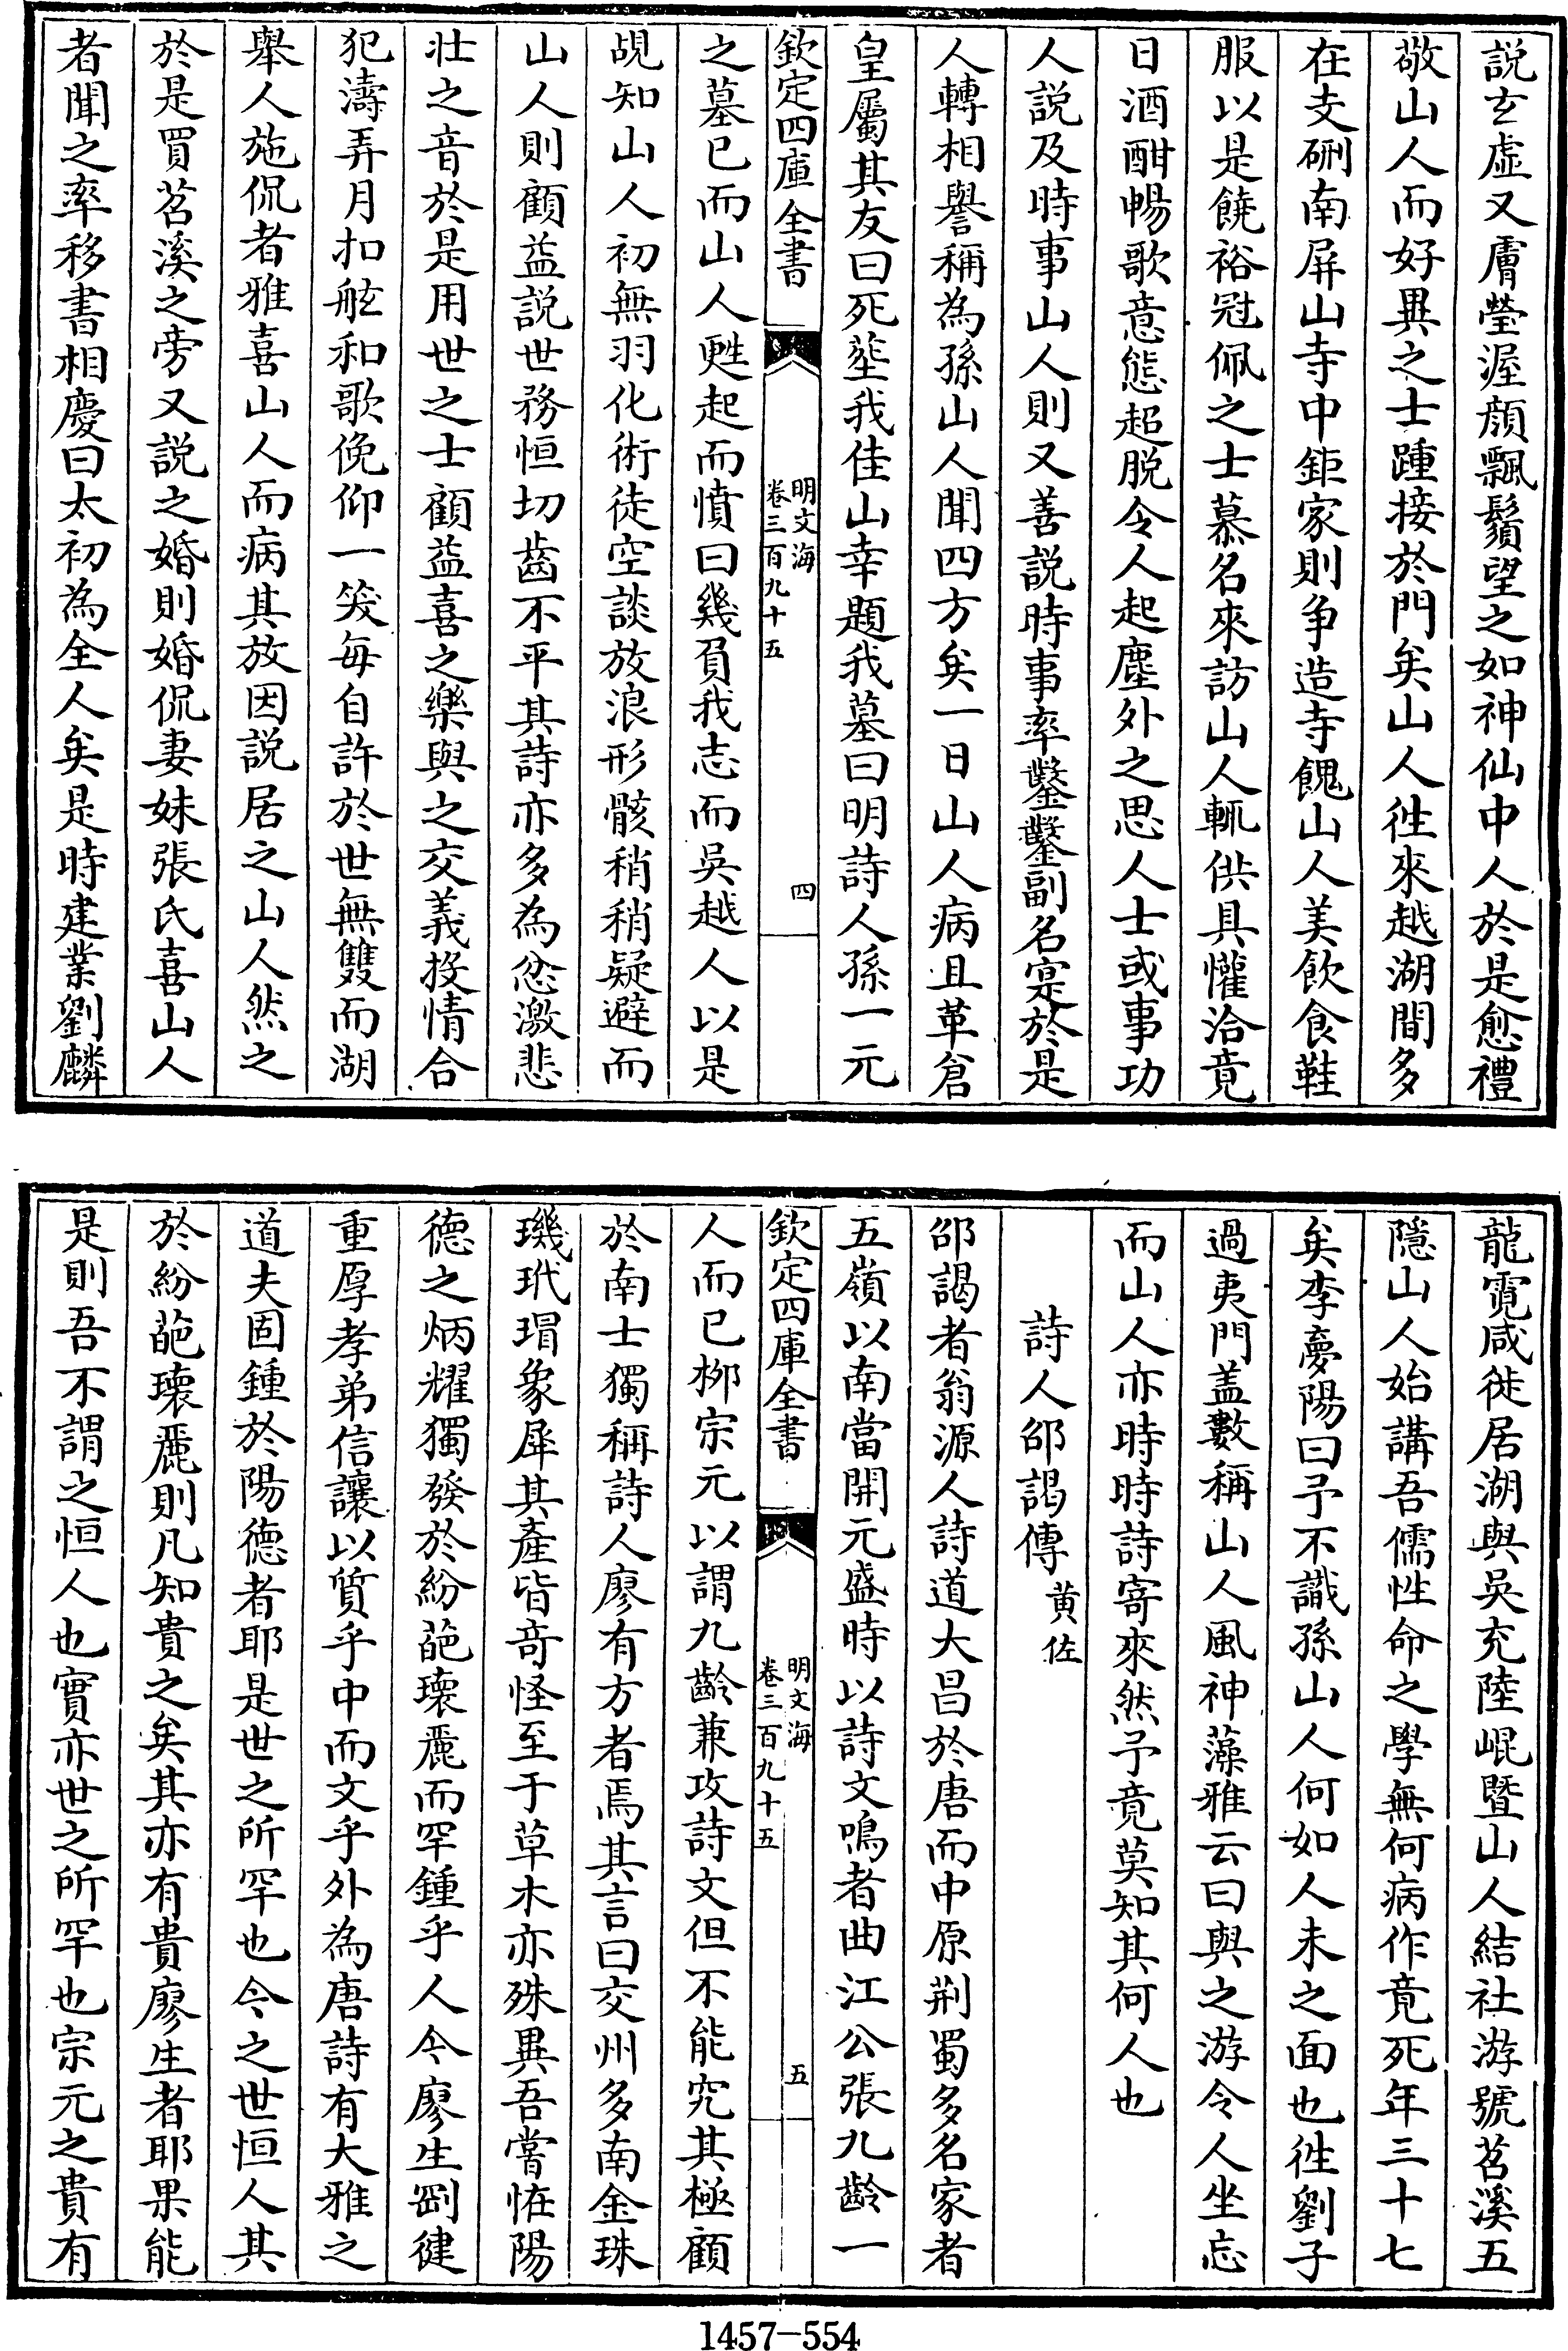 説玄虚又膚瑩渥顔飄鬚望之如神仙中人於是愈禮
敬山人而好異之士踵接於門矣山人徃來越湖間多
在支硎南屏山寺中鉅家則争造寺餽山人美飲食鞋
服以是饒裕冠佩之士慕名來訪山人輒供具懽洽竟
日酒酣暢歌意態超脱令人起塵外之思人士或事功
人説及時事山人則又善説時事率鑿鑿副名寔於是
人轉相譽稱為孫山人聞四方矣一日山人病且革倉
皇屬其友曰死塟我佳山幸題我墓曰明詩人孫一元
欽定四庫全書
明文海
卷三百九十五
四
之墓已而山人甦起而憤曰幾負我志而吳越人以是
覘知山人初無羽化術徒空談放浪形骸稍稍疑避而
山人則顧益説世務恒切齒不平其詩亦多為忿激悲
壯之音於是用世之士顧益喜之樂與之交義投情合
犯濤弄月扣舷和歌俛仰一笑每自許於世無雙而湖
舉人施侃者雅喜山人而病其放因説居之山人然之
於是買苕溪之旁又説之婚則婚侃妻妹張氏喜山人
者聞之率移書相慶曰太初為全人矣是時建業劉麟
龍霓咸徙居湖與吳充陸崐暨山人結社游號苕溪五
隱山人始講吾儒性命之學無何病作竟死年三十七
矣李夢陽曰予不識孫山人何如人未之面也徃劉子
過夷門盖數稱山人風神藻雅云曰與之游令人坐忘
而山人亦時時詩寄來然予竟莫知其何人也
詩人邵謁傳 黄佐
邵謁者翁源人詩道大昌於唐而中原荆蜀多名家者
五嶺以南當開元盛時以詩文鳴者曲江公張九齡一
欽定四庫全書
明文海
卷三百九十五
五
人而已栁宗元以謂九齡兼攻詩文但不能究其極顧
於南士獨稱詩人廖有方者焉其言曰交州多南金珠
璣玳瑁象犀其產皆竒怪至于草木亦殊異吾嘗恠陽
德之炳耀獨發於紛葩瓌麗而罕鍾乎人今廖生剛健
重厚孝弟信讓以質乎中而文乎外為唐詩有大雅之
道夫固鍾於陽德者耶是世之所罕也今之世恒人其
於紛葩瓌麗則凡知貴之矣其亦有貴廖生者耶果能
是則吾不謂之恒人也實亦世之所罕也宗元之貴有
1457-554